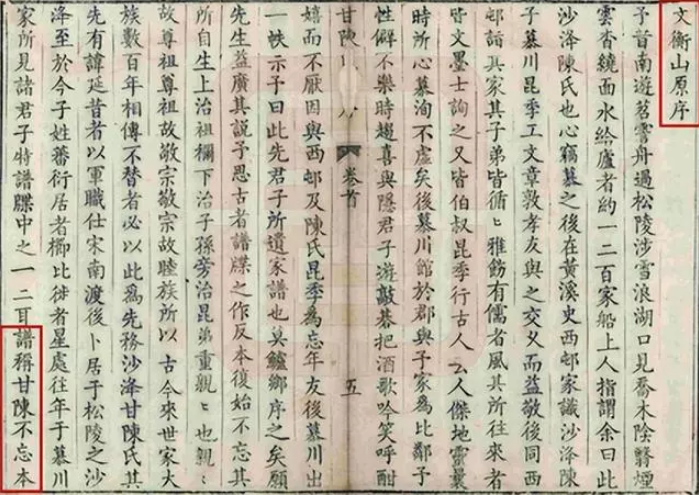 文衡山原序
予昔南遊苕霅舟過松陵涉雪浪湖口見喬木陰翳煙
雲杳繞面水給廬者約一二百家船上人指謂余曰此
沙洚陳氏也心竊慕之後在黃溪史西邨家識沙洚陳
子慕川昆季工文章敦孝友與之交乂而益敬後同西
邨詣其家其子弟皆循〻雅飭有儒者風其所往來者
皆文墨士詢之又皆伯叔昆季行古人云人傑地靈曩
時所心慕洵不虛矣後慕川館於郡與予家為比鄰予
性僻不樂時趨喜與隱君子游敲棊把酒歌吟笑呼酣
甘陳 卷首 五
嬉而不厭因與西邨及陳氏昆季為忘年友後慕川出
一帙示予曰此先君子所遺家譜也莫鱸鄉序之矣願
先生益廣其說予思古者譜牒之作反本復始不忘其
所自生上治祖禰下治子孫旁治昆弟重親〻也親〻
故尊祖尊祖故敬宗敬宗故睦族所以古今來世家大
族數百年相傳不替者必以此為先務沙洚甘陳氏其
先有諱延昔者以軍職仕宋南渡後卜居于松陵之沙
洚至於今子姓蕃衍居者櫛比徙者星處往年于慕川
家所見諸君子特譜牒中之一二耳譜稱甘陳不忘本